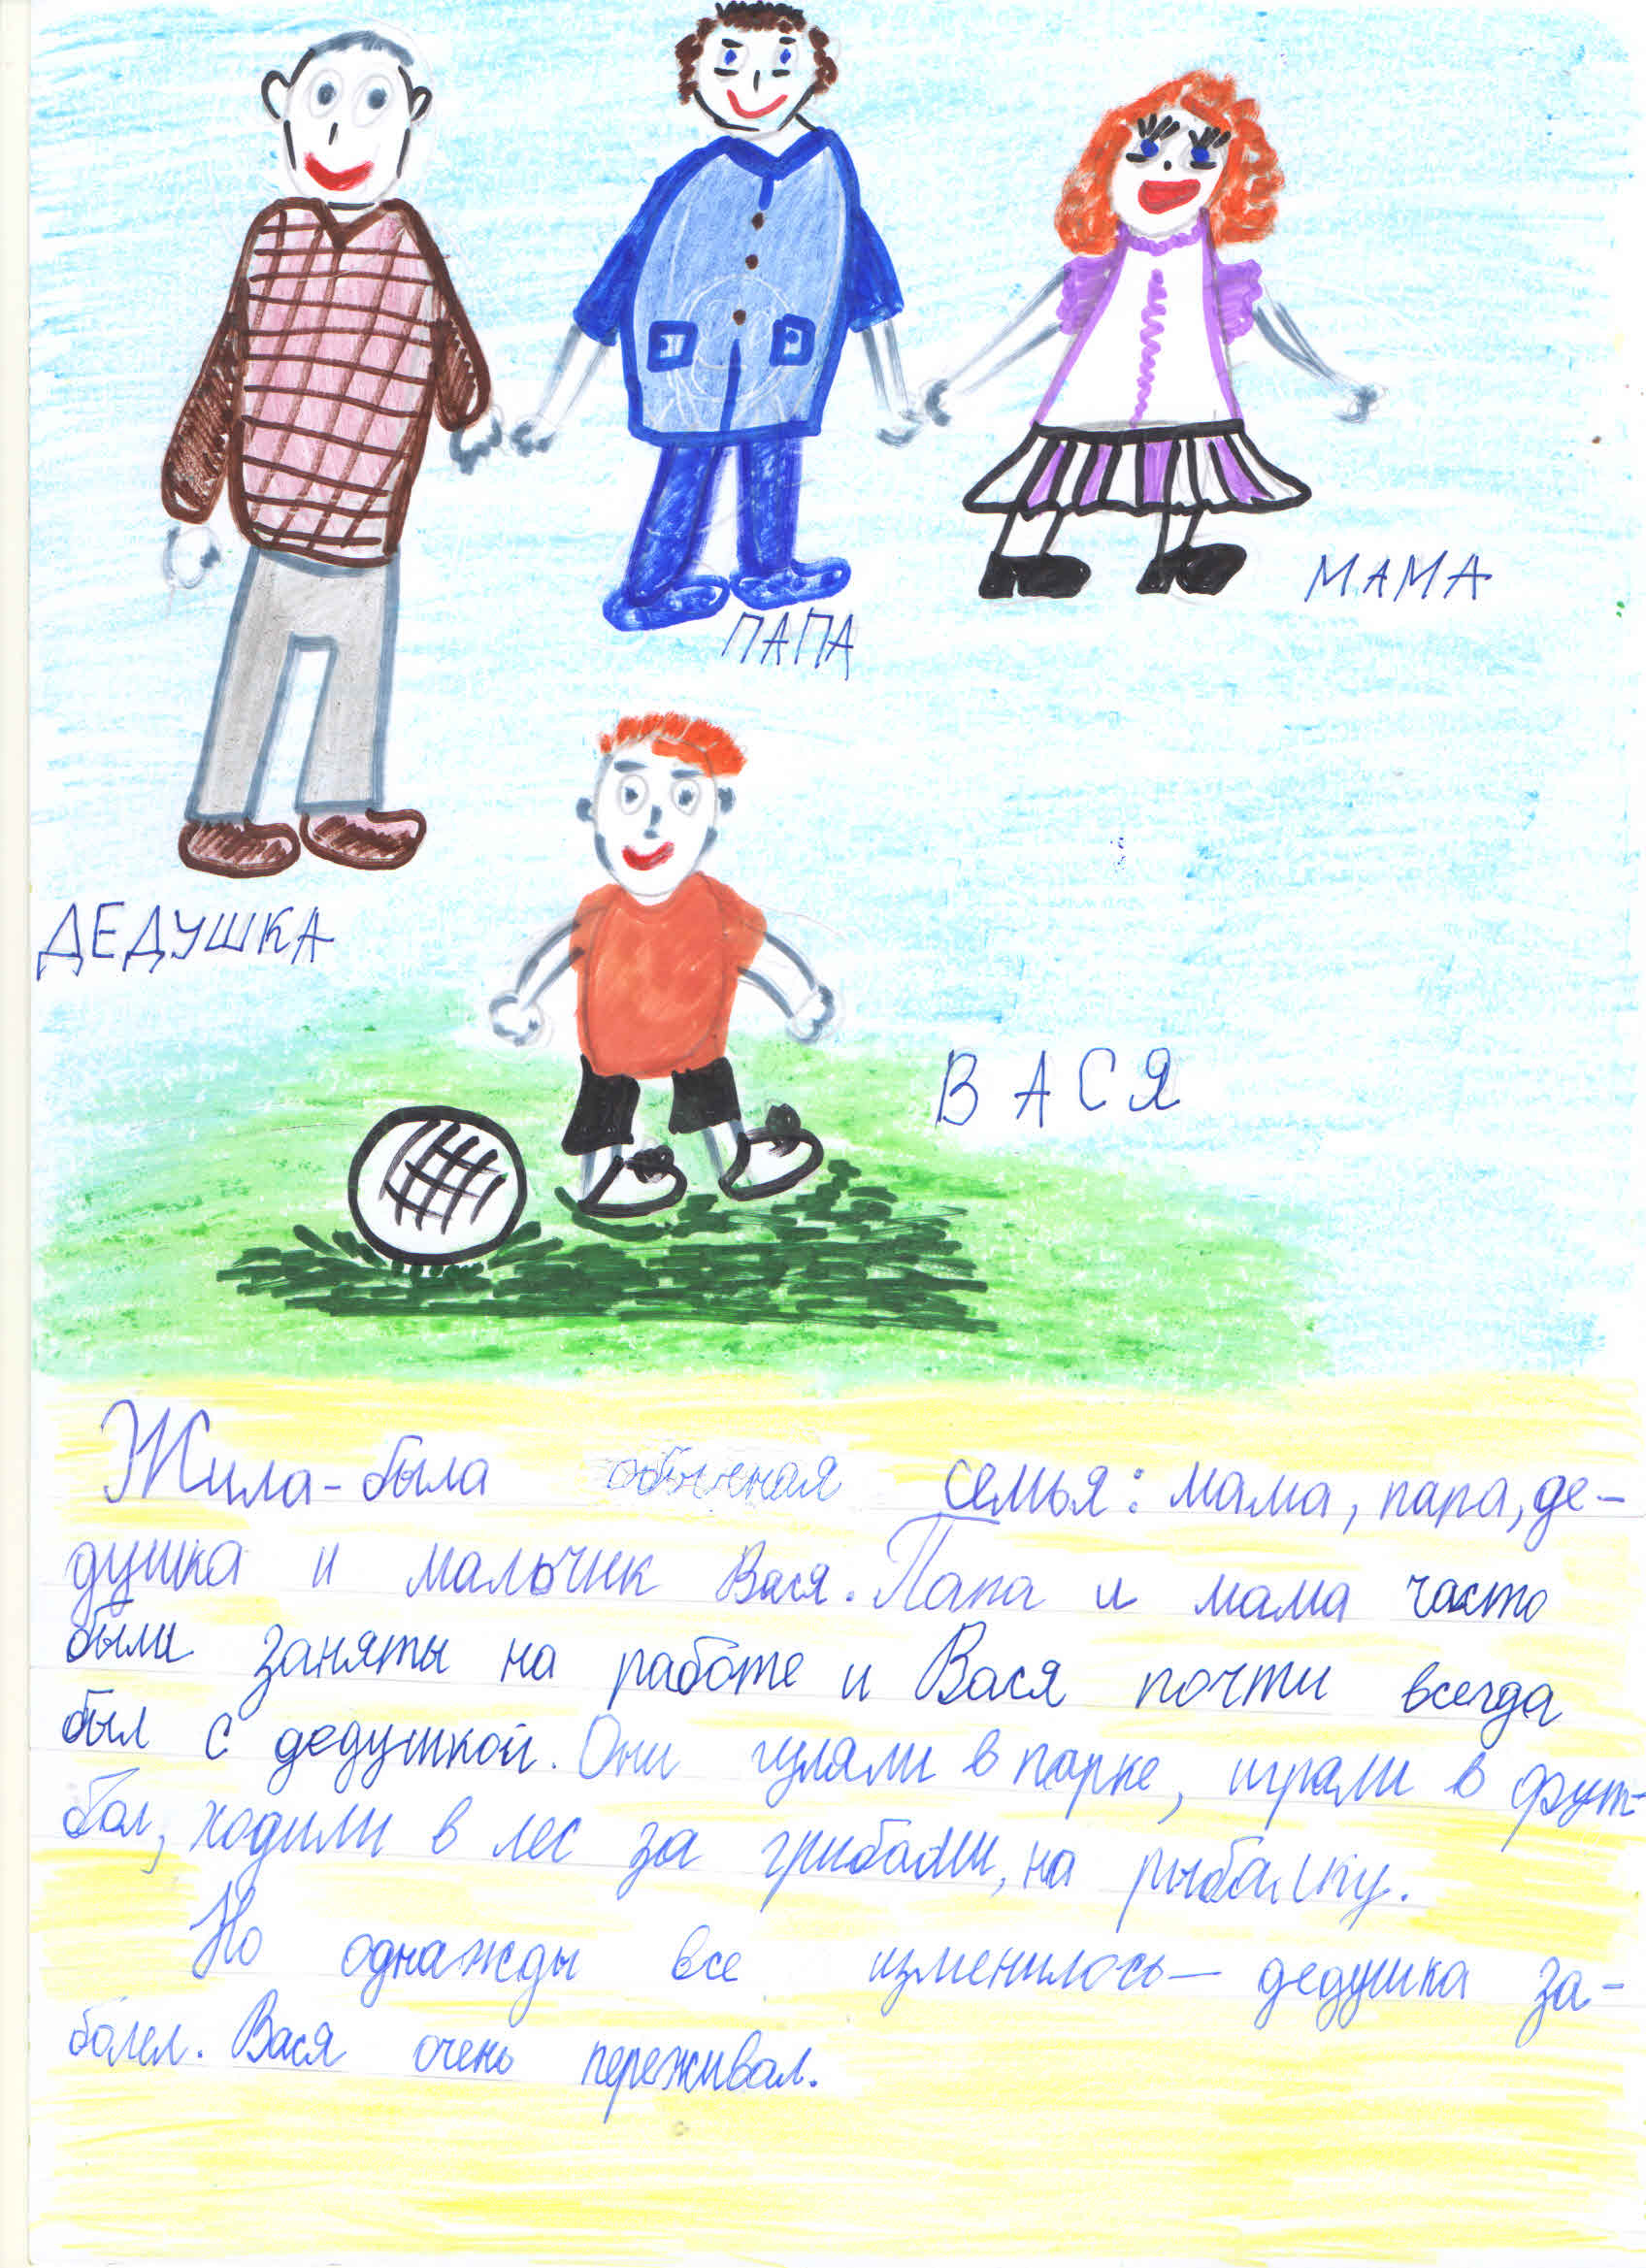 МАМА
ПАПА
ДЕДУШКА
ВАСЯ
Жила-была обычная семья: мама, папа, де-
душка и мальчик Вася. Папа и мама часто
были заняты на работе и Вася почти всегда
был с дедушкой. Они гуляли в парке, играли в фут-
бол, ходили в лес за грибами, на рыбалку.
Но однажды все изменилось — дедушка за-
болел. Вася очень переживал.